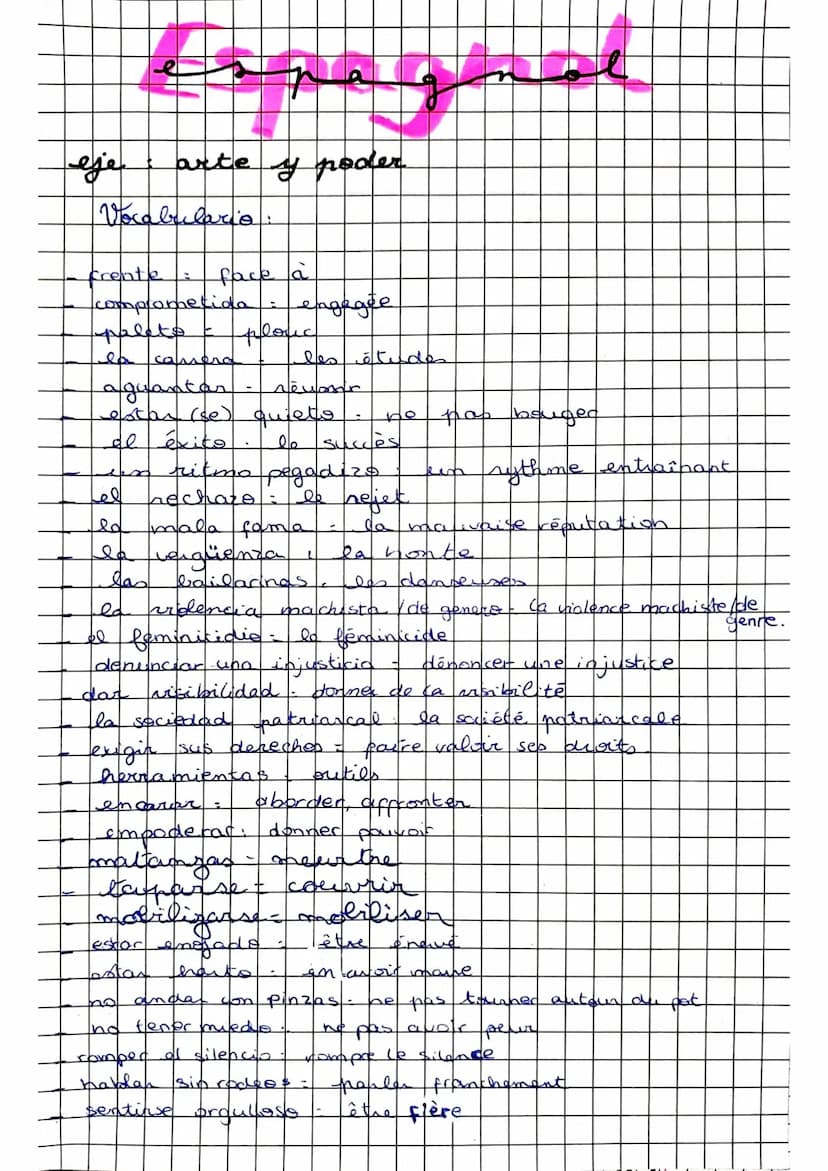 Espagnol
espagnol
eje : arte y poder
Vocabulario :
- frente : face à
- comprometida : engagée
- paleto = plouc
- la carrera = les études
- aguantar =
- estar (se) quieto : ne pas bouger
- el éxito : le succès
- un ritmo pegadizo : un rythme entraînant
- el rechazo : le rejet
- la mala fama = la mauvaise réputation
- la vergüenza : la honte
- las bailarinas : les danseuses
- la violencia machista / de genero - la violence machiste / de genre.
- el feminicidio = le féminicide
- denunciar una injusticia = dénoncer une injustice
- dar visibilidad - donner de la visibilité
- la sociedad patriarcal : la société patriarcale
- exigir sus derechos = faire valoir ses droits
- herramientas : outils
- encarar : aborder, affronter
- empoderar : donner pouvoir
- matanzas - meurtre
- taparse = couvrir
- mobilizarse = mobiliser
- estar enojado = être énervé
- estar harto - en avoir marre
- no andar con pinzas - ne pas tourner autour du pot
- no tener miedo : ne pas avoir peur
- romper el silencio : rompre le silence
- hablar sin rodeos : parler franchement
- sentirse orgulloso - être fière